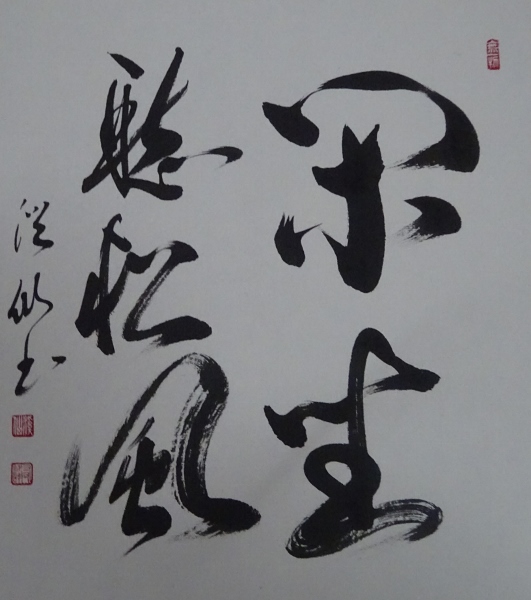 閑坐
聽松風